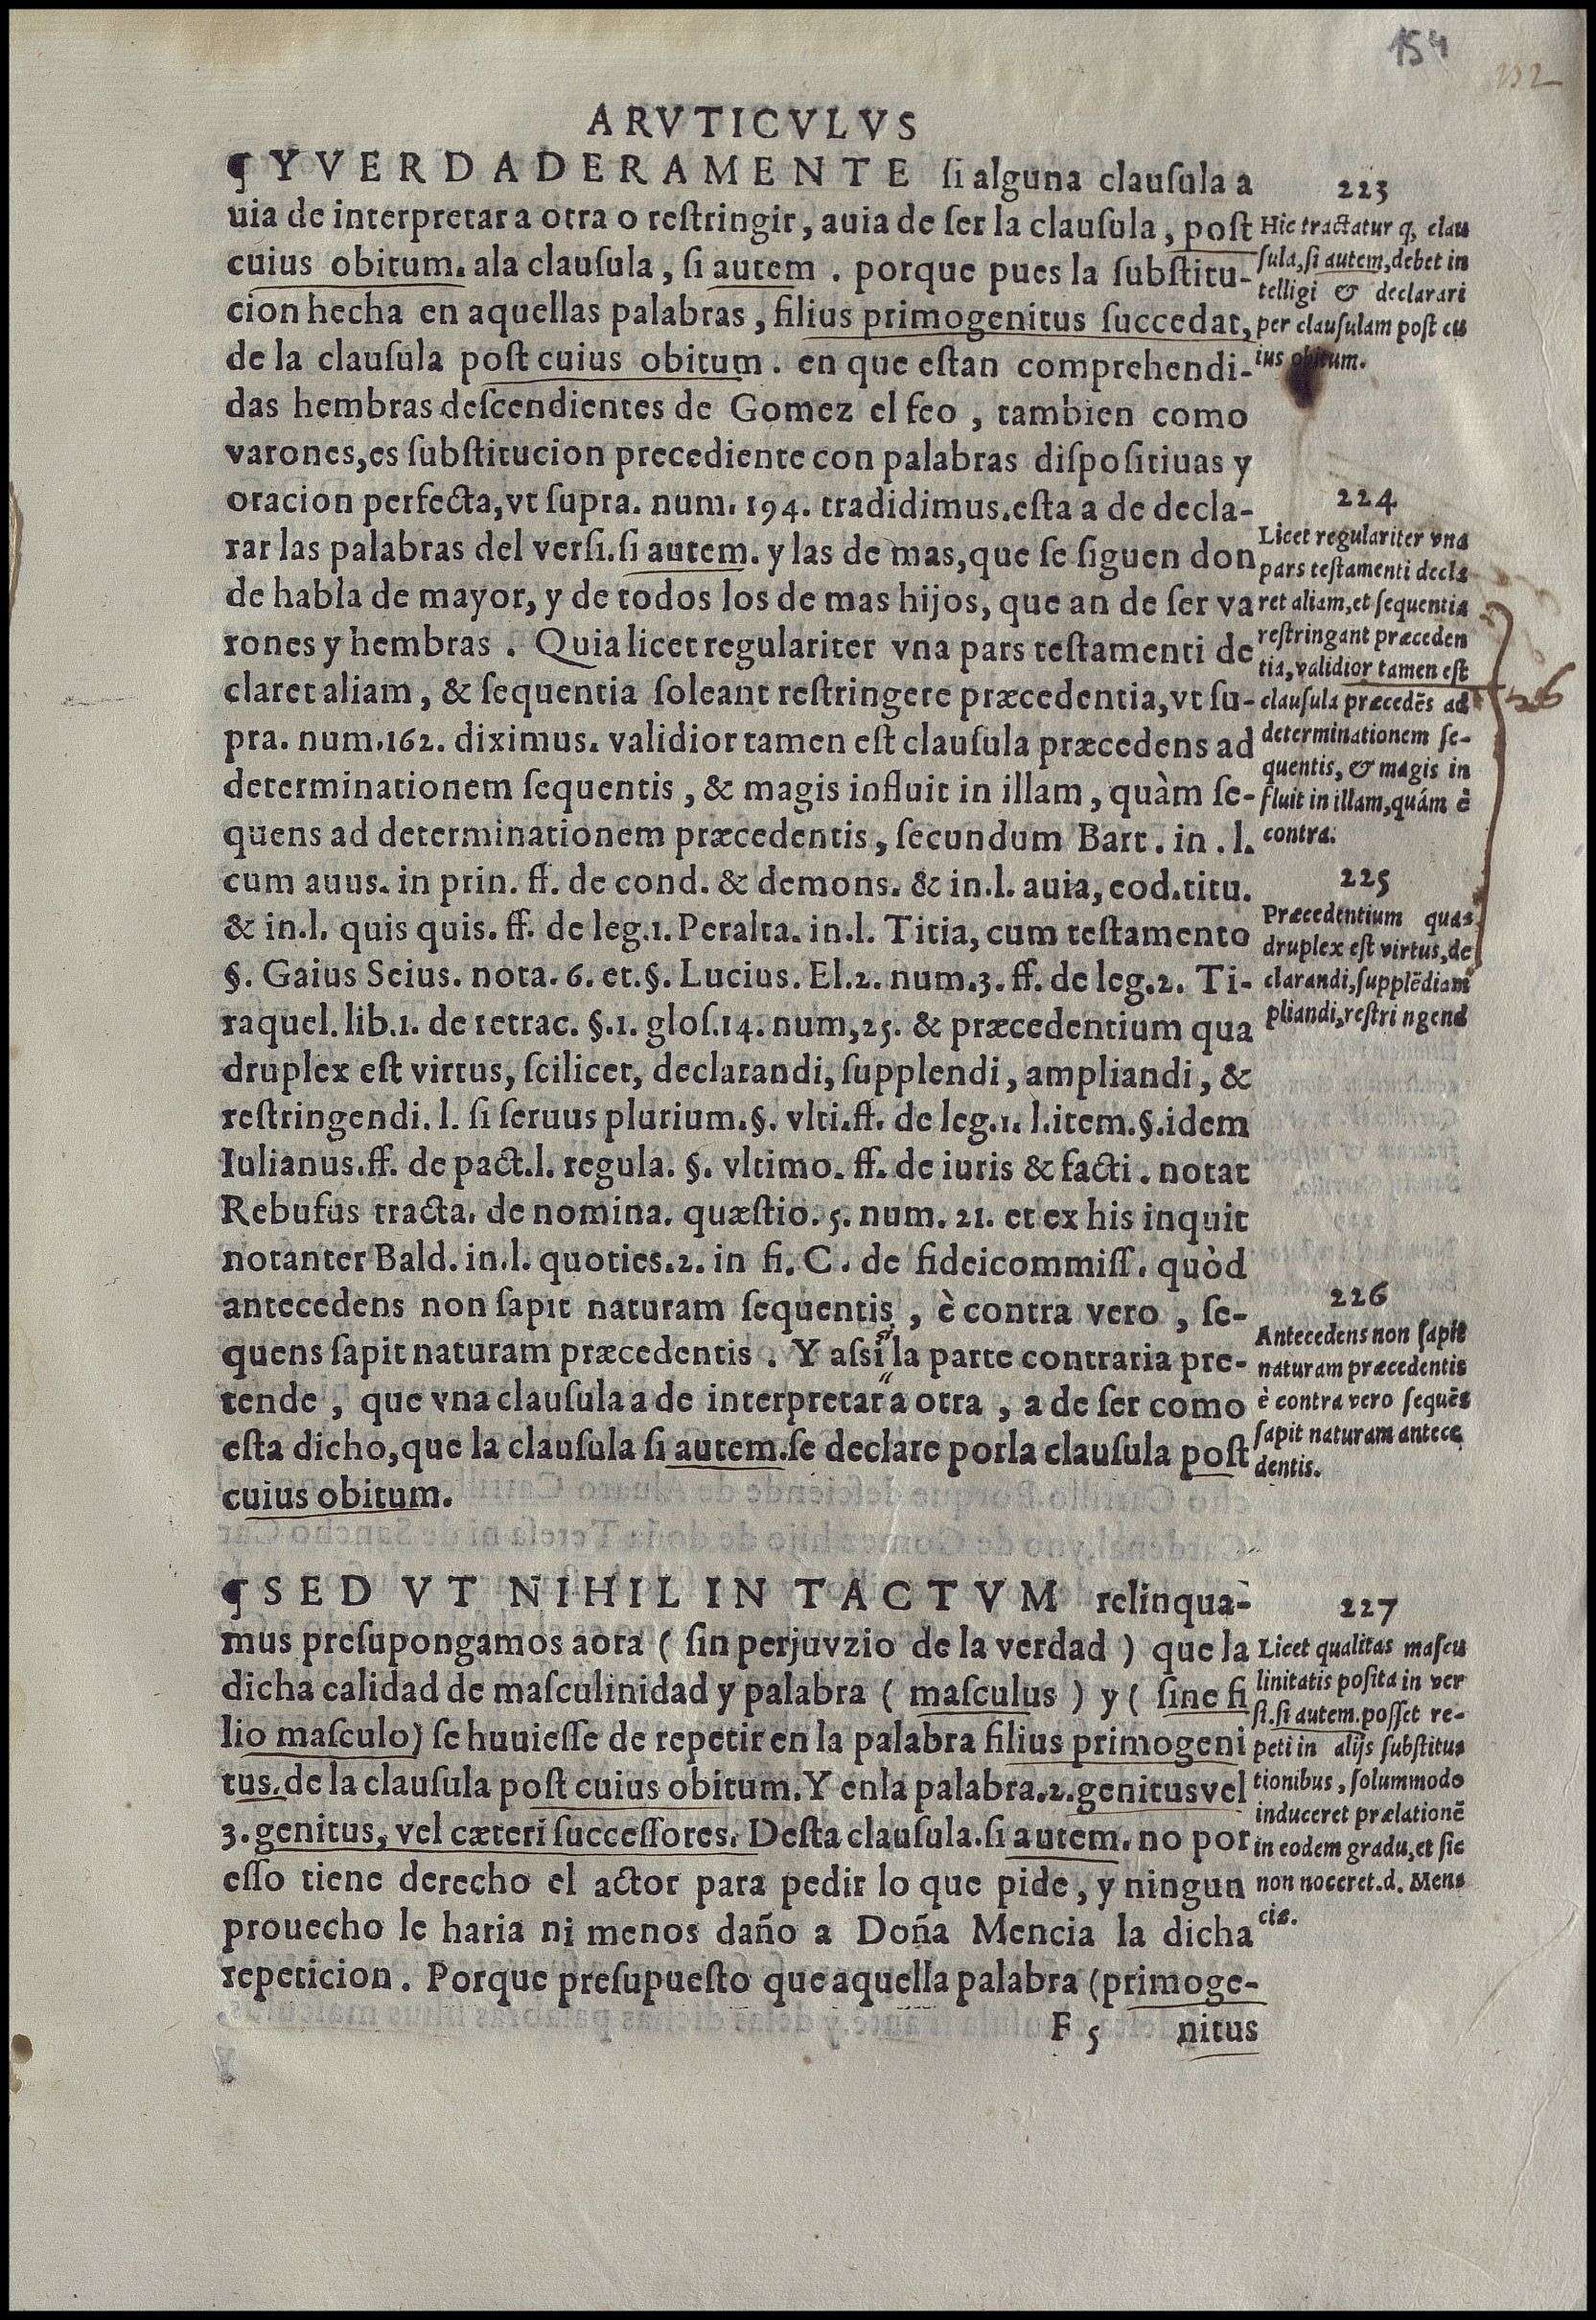 154
152
ARVTICVLVS
¶ Y VERDADERAMENTE si alguna clausula a
uia de interpretar a otra o restringir, auia de ser la clausula, post
cuius obitum. ala clausula, si autem. porque pues la substitu-
cion hecha en aquellas palabras, filius primogenitus succedat,
de la clausula post cuius obitum. en que estan comprehendi-
das hembras descendientes de Gomez el feo, tambien como
varones, es substitucion precediente con palabras dispositiuas y
oracion perfecta, vt supra. num. 194. tradidimus. esta a de decla-
rar las palabras del versi. si autem. y las de mas, que se siguen don
de habla de mayor, y de todos los de mas hijos, que an de ser va
rones y hembras. Quia licet regulariter vna pars testamenti de
claret aliam, & sequentia soleant restringere præcedentia, vt su-
pra. num. 162. diximus. validior tamen est clausula præcedens ad
determinationem sequentis, & magis influit in illam, quàm se-
quens ad determinationem præcedentis, secundum Bart. in. l.
cum auus. in prin. ff. de cond. & demons. & in. l. auia, eod. titu.
& in. l. quis quis. ff. de leg. 1. Peralta. in. l. Titia, cum testamento
§. Gaius Seius. nota. 6. et. §. Lucius. El. 2. num. 3. ff. de leg. 2. Ti-
raquel. lib. 1. de retrac. §. 1. glos. 14. num, 25. & præcedentium qua
druplex est virtus, scilicet, declarandi, supplendi, ampliandi, &
restringendi. l. si seruus plurium. §. vlti. ff. de leg. 1. l. item. §. idem
Iulianus. ff. de pact. l. regula. §. vltimo. ff. de iuris & facti. notat
Rebufus tracta. de nomina. quæstio. 5. num. 21. et ex his inquit
notanter Bald. in. l. quoties. 2. in fi. C. de fideicommiss. quòd
antecedens non sapit naturam sequentis, è contra vero, se-
quens sapit naturam præcedentis. Y assi si la parte contraria pre-
tende, que vna clausula a de interpretar a otra, a de ser como
esta dicho, que la clausula si autem. se declare por la clausula post
cuius obitum.
¶ SED VT NIHIL IN TACTVM relinqua-
mus presupongamos aora ( sin perjuvzio de la verdad ) que la
dicha calidad de masculinidad y palabra ( masculus ) y ( sine fi
lio masculo) se huuiesse de repetir en la palabra filius primogeni
tus. de la clausula post cuius obitum. Y enla palabra. 2. genitus vel
3. genitus, vel cæteri successores. Desta clausula. si autem. no por
esso tiene derecho el actor para pedir lo que pide, y ningun
prouecho le haria ni menos daño a Doña Mencia la dicha
repeticion. Porque presupuesto que aquella palabra (primoge-
F 5 nitus
223
Hic tractatur q, clau
sula, si autem, debet in
telligi & declarari
per clausulam post cu
ius obitum.
224
Licet regulariter vna
pars testamenti decla
ret aliam, et sequentia
restringant præceden
tia, validior tamen est
clausula præcedēs ad
determinationem se-
quentis, & magis in
fluit in illam, quám è
contra.
225
Præcedentium qua
druplex est virtus, de
clarandi, supplēdi am
pliandi, restringend
226
Antecedens non sapit
naturam præcedentis
è contra vero sequēs
sapit naturam antece
dentis.
227
Licet qualitas mascu
linitatis posita in ver
si. si autem. posset re-
peti in alijs substitu
tionibus, solummodo
induceret prælationē
in eodem gradu, et sic
non noceret. d. Men
cie.